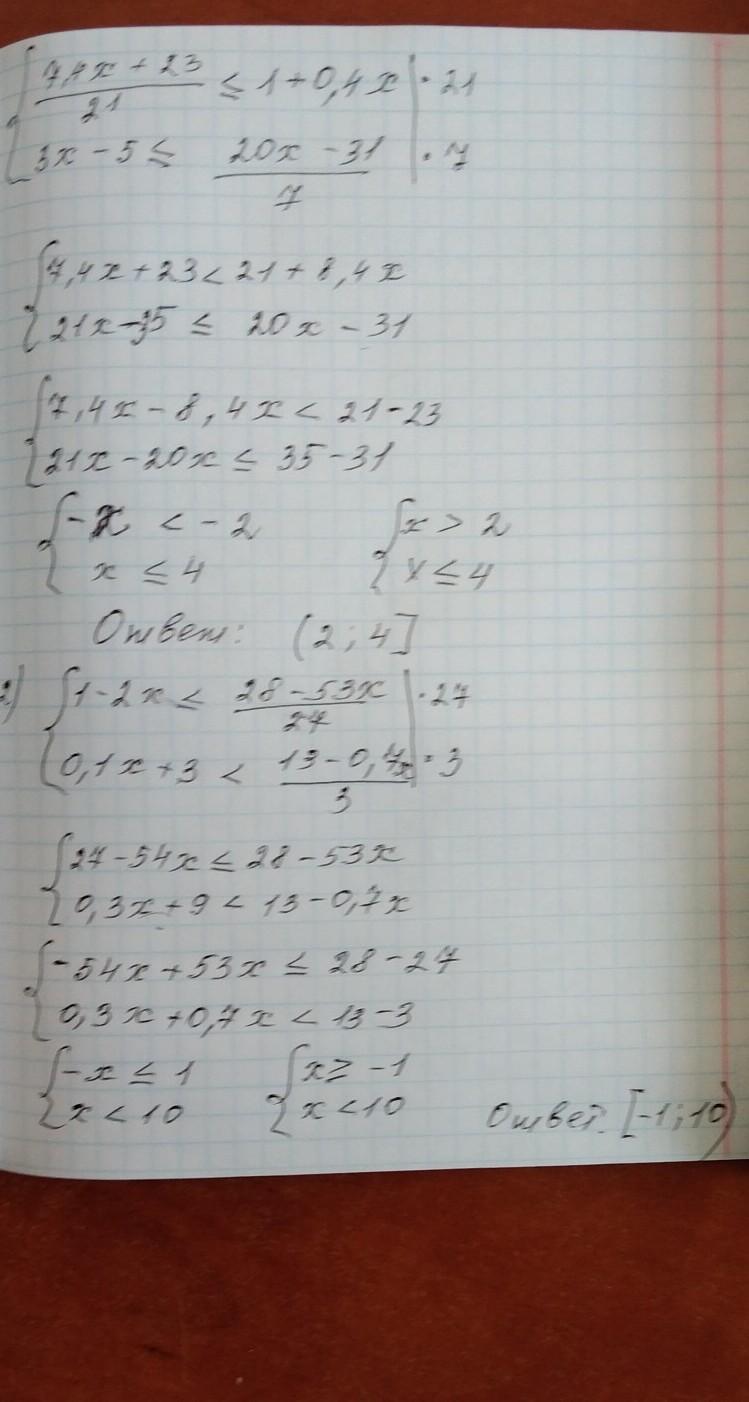 { (7,4x + 23)/21 ≤ 1 + 0,4x | · 21
3x - 5 ≤ (20x - 31)/7 | · 7
{ 7,4x + 23 < 21 + 8,4x
21x - 35 ≤ 20x - 31
{ 7,4x - 8,4x < 21 - 23
21x - 20x ≤ 35 - 31
{ -x < -2 { x > 2
x ≤ 4 x ≤ 4
Ответ: (2; 4]
2) { 1 - 2x ≤ (28 - 53x)/27 | · 27
0,1x + 3 < (13 - 0,7x)/3 | · 3
{ 27 - 54x ≤ 28 - 53x
0,3x + 9 < 13 - 0,7x
{ -54x + 53x ≤ 28 - 27
0,3x + 0,7x < 13 - 3
{ -x ≤ 1 { x ≥ -1
x < 10 x < 10 Ответ. [-1; 10)